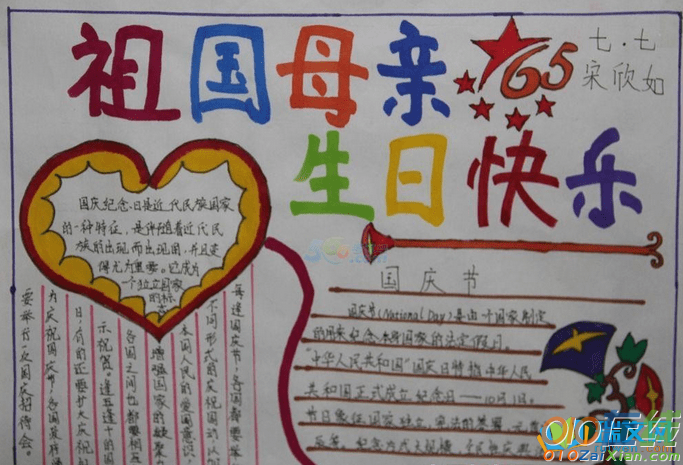 祖国母亲
65
七·七
宋欣如
生日快乐
国庆纪念日是近代民族国家
的一种特征,是伴随着近代民
族的出现而出现国,并且变
得尤为重要。它成为
一个独立国家
的标
志
国庆节
国庆节(National Day)是由一个国家制定
的用来纪念本身国家的法定假日
"中华人民共和国"国庆日特指中华人民
共和国正式成立纪念日——10月1日。
节日象征国家独立、宪法的签署
每逢国庆节,各国都要举
不同形式的庆祝活动,以加
本国人民的爱国意识
增强国家的凝聚
各国之间也都要相互
示祝贺。逢五逢十的国
日,有的还要扩大庆祝
为庆祝国庆节,各国政府通
要举行一次国庆招待会。
010在线
010ZaiXian.com